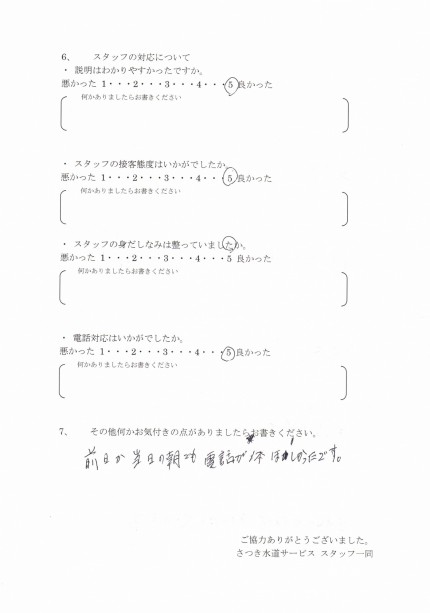 6、 スタッフの対応について
・ 説明はわかりやすかったですか。
悪かった 1・・・2・・・3・・・4・・・5 良かった
何かありましたらお書きください
・ スタッフの接客態度はいかがでしたか。
悪かった 1・・・2・・・3・・・4・・・5 良かった
何かありましたらお書きください
・ スタッフの身だしなみは整っていましたか。
悪かった 1・・・2・・・3・・・4・・・5 良かった
何かありましたらお書きください
・ 電話対応はいかがでしたか。
悪かった 1・・・2・・・3・・・4・・・5 良かった
何かありましたらお書きください
7、 その他何かお気付きの点がありましたらお書きください。
前日か当日の朝でも電話が1本ほしかったです。
ご協力ありがとうございました。
さつき水道サービス スタッフ一同